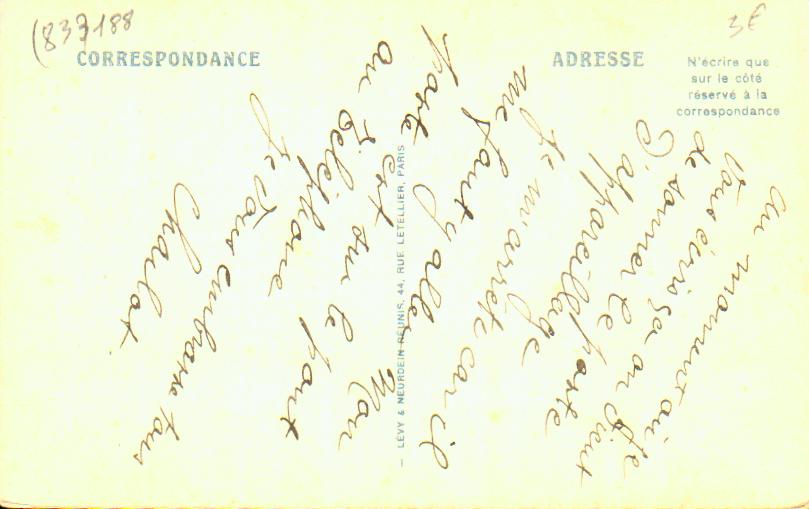 (837188
3€
CORRESPONDANCE
ADRESSE
N'écrire que
sur le côté
réservé à la
correspondance
— LÉVY & NEURDEIN RÉUNIS, 44, RUE LETELLIER, PARIS
Au moment où je
vous écris ça on vient
de sonner le poste
d'appareillage
je m'arrête car il
me faut y aller Mon
poste est sur le pont
au téléphone
Je vous embrasse tous